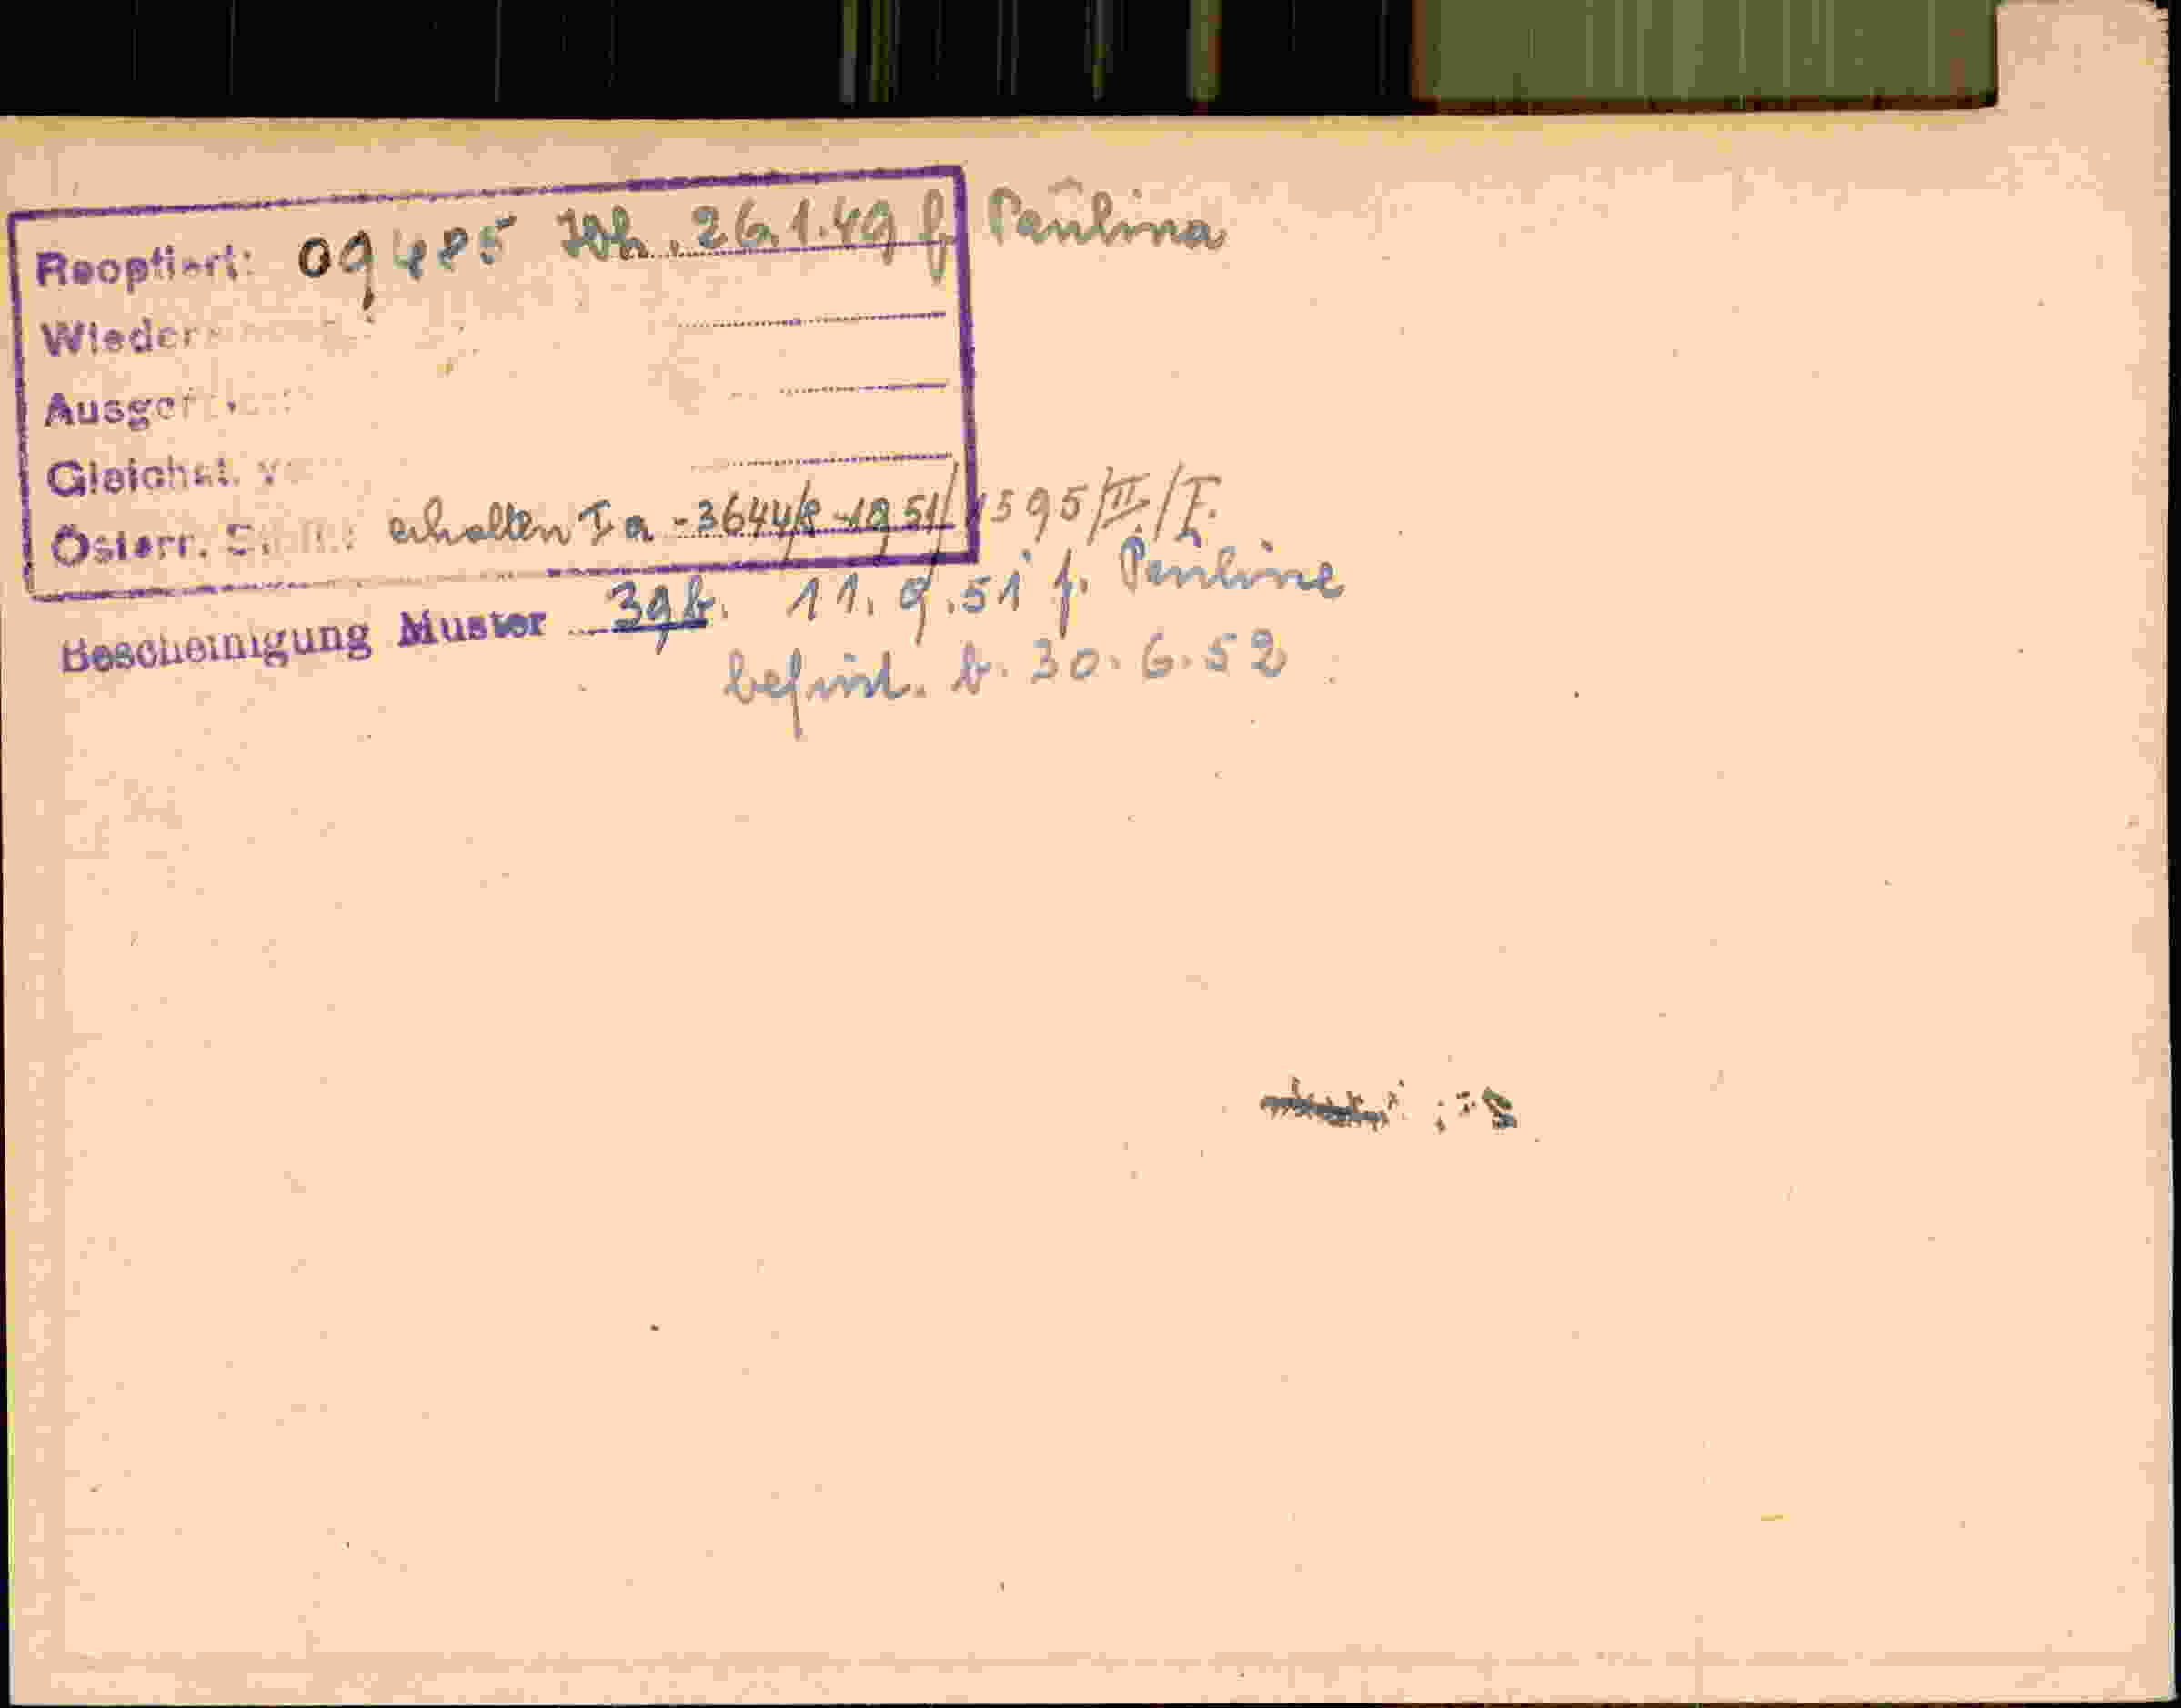 Reoptiert: 09485 26.1.49 f. Paulina
Wieder
Ausger
Gleichst. v
Österr. erhalten I a - 3644/8-1951/1595/II/I.
Bescheinigung Muster 39b. 11.9.51 f. Pauline
befrist. b. 30.6.52